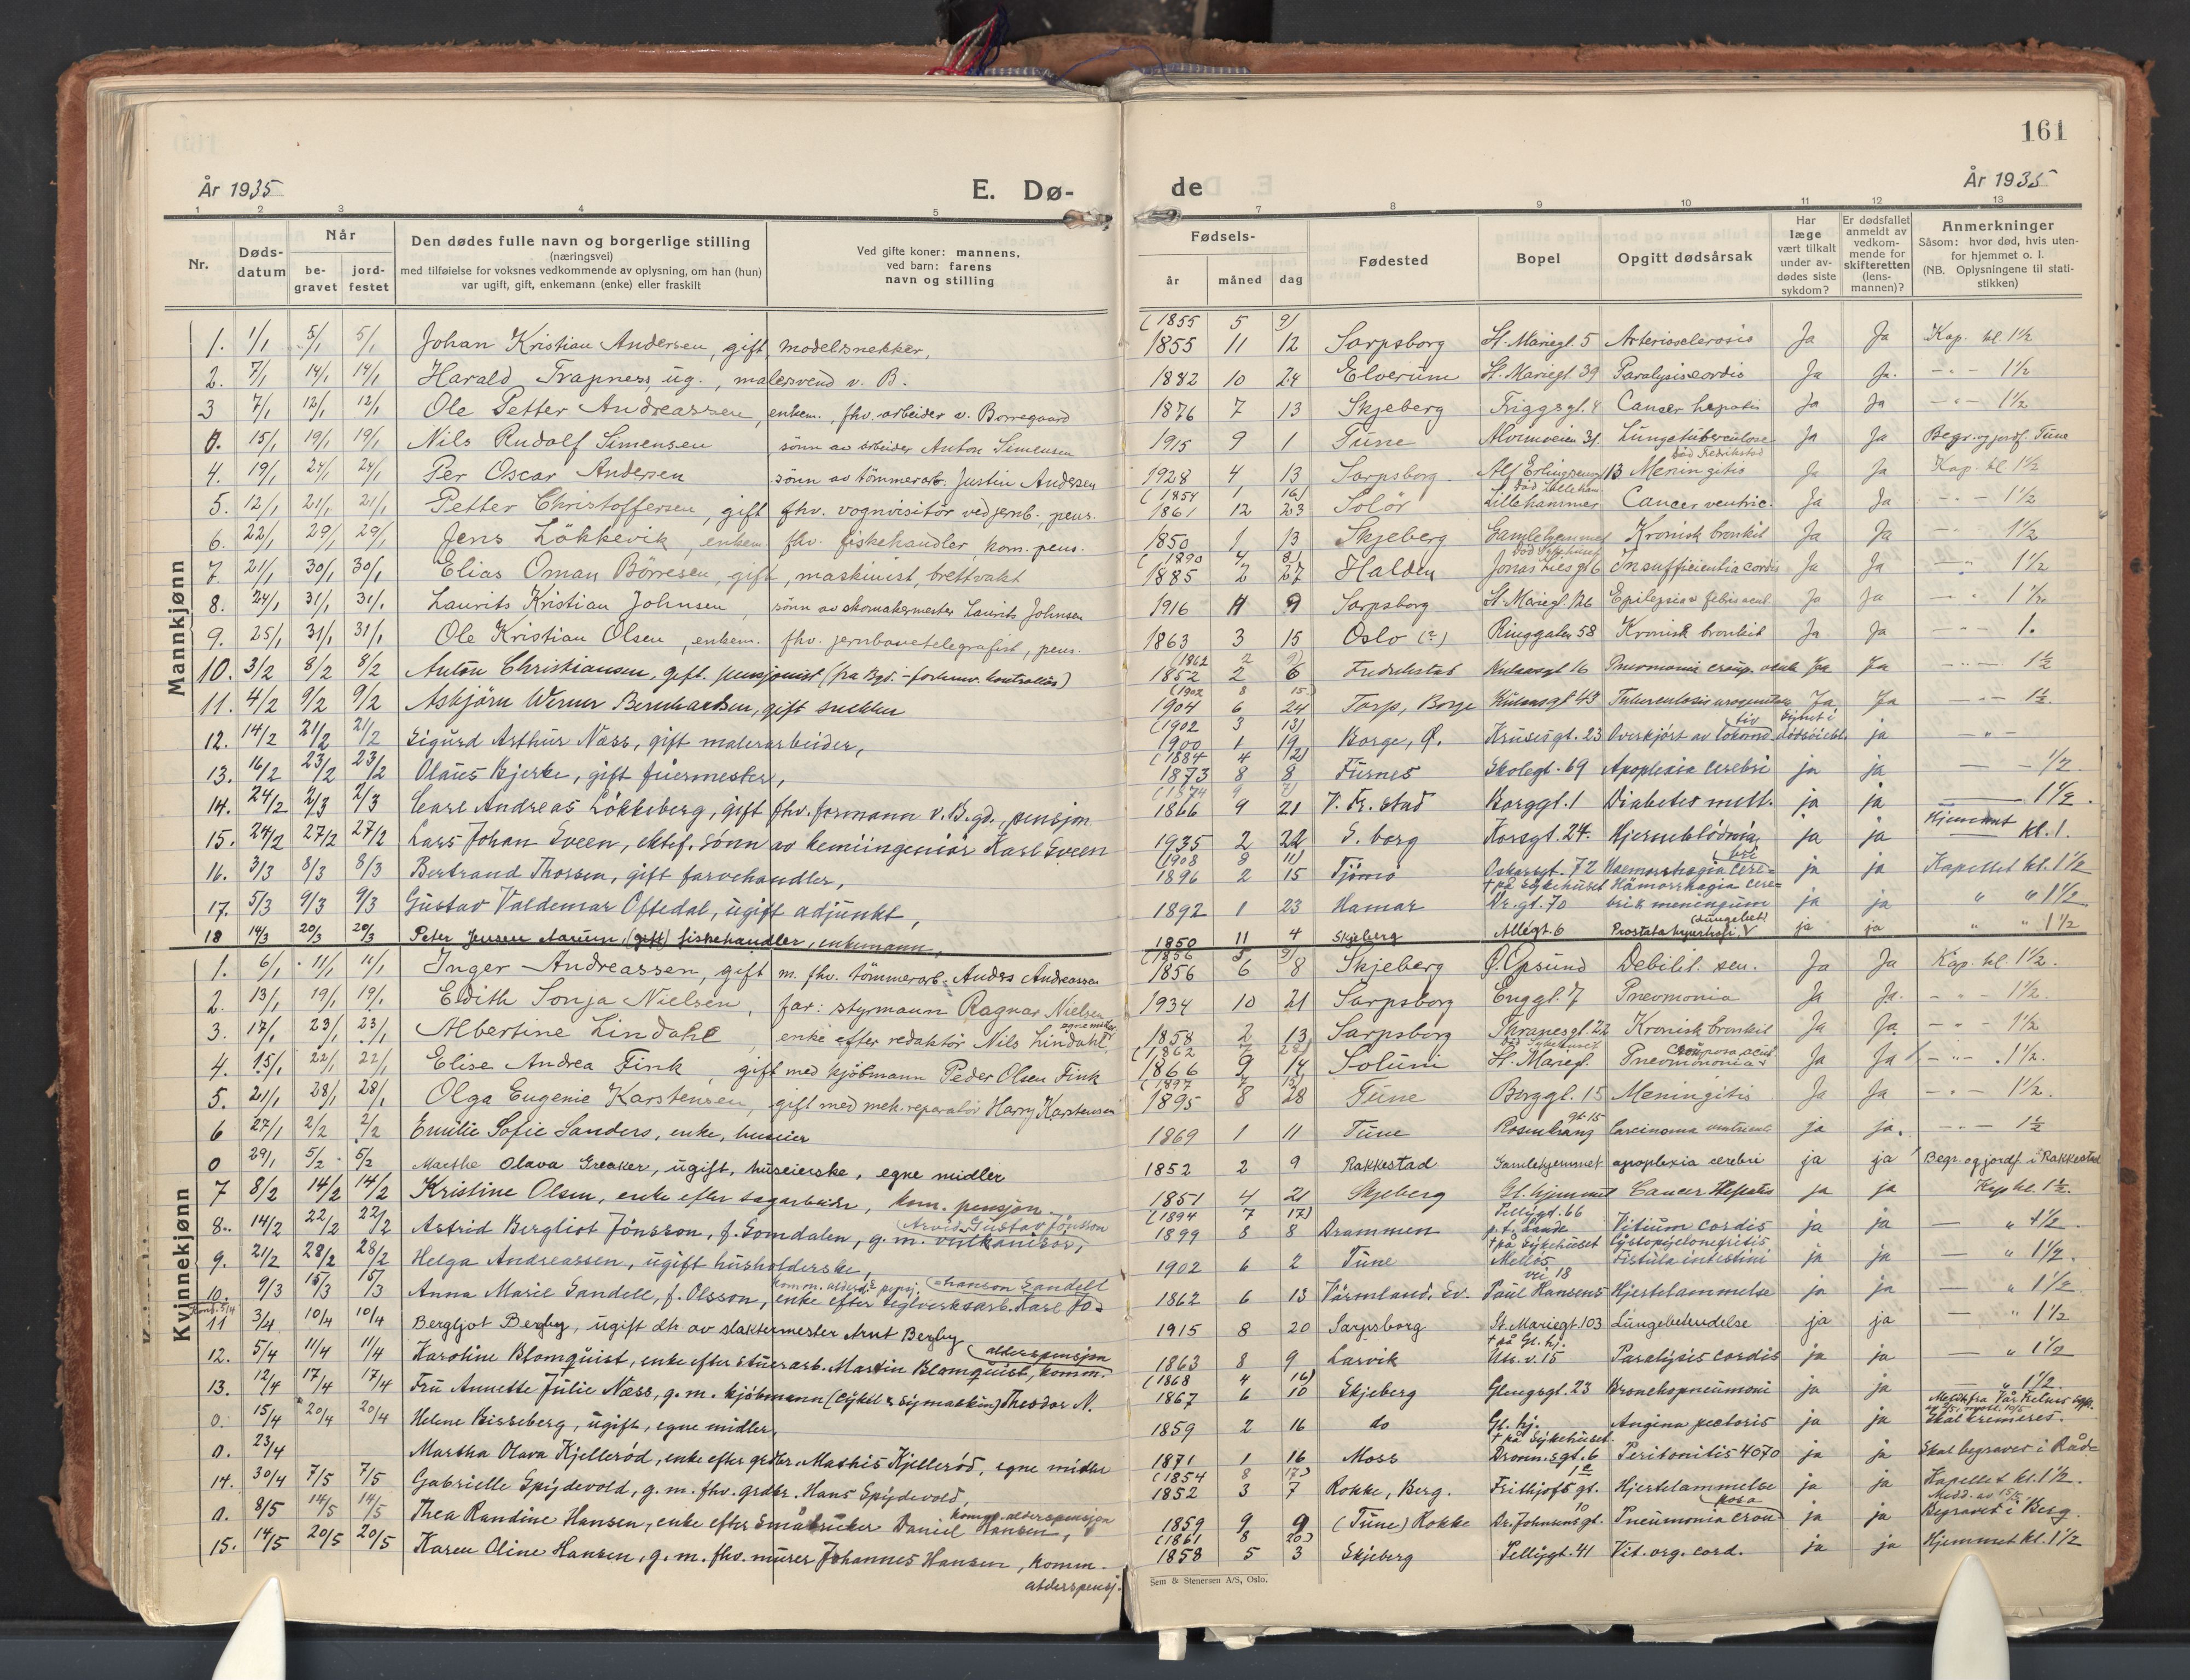 161
År 1935 E. Dø- de År 1935
1 2 3 4 5 7 8 9 10 11 12 13
Nr. Døds-datum Når be-gravet jord-festet Den dødes fulle navn og borgerlige stilling (næringsvei) med tilføielse for voksnes vedkommende av oplysning, om han (hun) var ugift, gift, enkemann (enke) eller fraskilt Ved gifte koner: mannens, ved barn: farens navn og stilling Fødsels- år måned dag Fødested Bopel Opgitt dødsårsak Har læge vært tilkalt under av-dødes siste sykdom? Er dødsfallet anmeldt av vedkom-mende for skifteretten (lens-mannen)? Anmerkninger Såsom: hvor død, hvis uten-for hjemmet o. l. (NB. Oplysningene til stati-stikken)
Mannkjønn
(1855 5 9)
1. 1/1 5/1 5/1 Johan Kristian Andersen, gift modelsnekker, 1855 11 12 Sarpsborg St. Mariegt. 5 Arteriosclerosis Ja Ja Kap. kl. 1½
2. 7/1 14/1 14/1 Harald Trapness, ug., malersvend v. B. 1882 10 24 Elverum St. Mariegt. 39 Paralysis cordis Ja Ja. - " - 1½
3 7/1 12/1 12/1 Ole Petter Andreassen, enkem. fhv. arbeider v. Borregaard 1876 7 13 Skjeberg Triggsgt. 4 Cancer hepatis Ja Ja - " - 1½
0. 15/1 19/1 19/1 Nils Rudolf Simensen sönn av arbeider Anton Simensen 1915 9 1 Tune Alvimveien 31. Lungetuberculose Ja Ja Begr. og jordf. Tune
4. 19/1 24/1 24/1 Per Oscar Andersen sönn av tömmerarb. Justin Andersen 1928 4 13 Sarpsborg. Alf Erlingsensgt 13 død Fredrikstad Meningitis Ja Ja Kap. kl 1½
(1854 1 16) død Lilleham.
5. 12/1 21/1 21/1 Petter Christoffersen, gift fhv. vognvisitör ved jernb. pens. 1861 12 23 Solör Lillehammer Cancer ventric. Ja Ja - " - 1½
6. 22/1 29/1 29/1 Jens Lökkevik, enkem fhv. fiskehandler, kom. pens. 1850 1 13 Skjeberg Gamlehjemmet Kronisk bronkit Ja Ja - " 1½
(1890 4 8) død Sykehuset
7. 21/1 30/1 30/1 Elias Oman Börresen, gift, maskinist, brettvakt 1885 2 27 Halden Jonas Liesgt 6 Insufficientia cordis Ja Ja - " 1½
8. 24/1 31/1 31/1 Laurits Kristian Johnsen, sönn av skomakermester Laurits Johnsen 1916 11 9 Sarpsborg St. Mariegt. 126 Epilepsia Ja Ja - " 1½
9. 25/1 31/1 31/1 Ole Kristian Olsen, enkem. fhv. jernbanetelegrafist, pens. 1863 3 15 Oslo (?) Ringgaten 58 Kronisk bronkit Ja Ja - " - 1.
1862 2 9)
10. 3/2 8/2 8/2 Anton Christiansen, gift. pensjonist (fra Bgd. - forhenv. kontrollör) 1852 2 6 Fredrikstad Kulaasgt 16 Pneumonia croup. acuta Ja Ja - " - 1½
(1902 8 15.)
11. 4/2 9/2 9/2 Asbjörn Werner Bernhardsen, gift snekker 1904 6 24 Torp, Borge Kulaasgt 43 Tuberculosis urogenitae Ja Ja - " - 1½.
(1902 3 13) tiv Synet i
12. 14/2 21/2 21/2 Sigurd Arthur Næss, gift malerarbeider, 1900 1 19 Borge, Ø. Krusesgt. 23 Overkjört av lokomo dödsöiebl. ja - " -
(1884 4 12)
13. 16/2 23/2 23/2 Olaus Bjerke, gift fuermester, 1873 8 8 Furnes Skolegt. 69 Apoplexia cerebri ja ja — — 1/2
(1874 9 7)
14. 24/2 2/3 2/3 Carl Andreas Lökkeberg, gift fhv. formann v. B.gd., pensjon 1866 9 21 V. Fr. stad Borggt. 1 Diabetes mell. ja ja — 1½.
15. 24/2 27/2 27/2 Lars Johan Sveen, ektef. sönn av kemiingeniör Karl Sveen 1935 2 22 S. borg Korsgt. 24. Hjerneblödning ja ja Hjemmet kl. 1.
(1908 8 11) bri
16. 3/3 8/3 8/3 Bertrand Thorsen, gift farvehandler, 1896 2 15 Tjömö Oskarsgt. 72 Haemorrhagia cere= ja ja Kapellet kl. 1½
† på sykehuset Hämorrhagia cere=
17. 5/3 9/3 9/3 Gustav Valdemar Oftedal, ugift adjunkt, 1892 1 23 Hamar Dr. gt. 70 bri & meningum ja ja " " 1½
(Lungebet)
18 14/3 20/3 20/3 Peter Jensen Aarum, (gift) fiskehandler, enkemann, 1850 11 4 Skjeberg Allégt. 6 Prostatahypertrofi. ja ja " " 1½
Kvinnekjønn
(1856 5 9)
1. 6/1 11/1 11/1 Inger Andreassen, gift m. fhv. tömmerarb. Anders Andreassen 1856 6 8 Skjeberg Ø. Opsund Debilit. sen. Ja Ja Kap. kl. 1½.
2. 13/1 19/1 19/1 Edith Sonja Nielsen, far: styrmann Ragnar Nielsen 1934 10 21 Sarpsborg Enggt. 7 Pneomonia Ja Ja. - " - 1½
egne midler
3. 17/1 23/1 23/1 Albertine Lindahl, enke efter redaktör Nils Lindahl 1858 2 13 Sarpsborg Thranesgt. 22 Kronisk bronkit Ja Ja - " - 1½
(1862 7 28) død Sykehuset Crouposa acut
4. 15/1 22/1 22/1 Elise Andrea Fink, gift med kjöbmann Peder Olsen Fink 1866 9 14 Solum St. Mariegt. Pneomononia Ja Ja - " - 1½.
(1897 7 15)
5. 21/1 28/1 28/1 Olga Eugenie Karstensen, gift med mek. reparatör Harry Karstensen 1895 8 28 Tune Borggt. 15 Meningitis Ja Ja - " - 1½.
gt. 15
6 27/1 2/2 2/2 Emilie Sofie Sanders, enke, huseier 1869 1 11 Tune Rosenkrang Carcinoma ventriculi ja ja. - " - 1½
0 29/1 5/2 5/2 Marthe Olava Greaker, ugift, huseierske, egne midler 1852 2 9 Rakkestad Gamlehjemmet apoplexia cerebri ja ja Begr. og jordf. i Rakkestad
7 8/2 14/2 14/2 Kristine Olsen, enke efter sagarbeider, kom. pensjon 1851 4 21 Skjeberg Gl. hjemmet Cancer Hepatis ja ja Kap kl. 1½.
Arvid Gustav Jönsson (1894 7 17) Pellygt. 66
8. 14/2 22/2 22/2 Astrid Bergliot Jönsson, f. Somdalen, g. m. vulkanisör, 1899 8 8 Drammen p. t. Sande Vitium cordis ja ja — " 1½
† på sykehuset Cystopyelonefritis
9. 21/2 28/2 28/2 Helga Andreassen, ugift husholderske, 1902 6 2 Tune Mellös Fistula intestini ja ja — " 1½.
komm. alderd. pensj. hanson Sandell vei 18
10. 9/3 15/3 15/3 Anna Marie Sandell, f. Olsson, enke efter teglverksarb. Karl Jo= 1862 6 13 Värmland, Sv. Paul Hansens Hjertelammelse ja ja — " 1½
11 3/4 10/4 10/4 Bergljot Bergby, ugift dtr. av slaktermester Arnt Bergby 1915 8 20 Sarpsborg St. Mariegt. 103 Lungebetendelse ja ja — " 1½
alderspensjon † på Gl. hj.
12. 5/4 11/4 11/4 Karoline Blomquist, enke efter stuerarb. Martin Blomquist, komm. 1863 8 9 Larvik Uts. v. 15 Paralysis cordis ja ja — " 1½
(1868 4 16)
13. 12/4 17/4 17/4 Fru Annette Julie Næss, g. m. kjöbmann (Cykel & Symaskin) Theodor N. 1867 6 10 Skjeberg Glengsgt. 23 Bronchopneumoni ja ja — " 1½
0. 15/4 20/4 20/4 Helene Bisseberg, ugift, egne midler, 1859 2 16 do Gl. hj. Angina pectoris ja ja Skal kremeres.
† på sykehuset
0. 23/4 Martha Olava Kjelleröd, enke efter grdbr. Mathis Kjelleröd, egne midler 1871 1 16 Moss Dronn.sgt. 6 Peritonitis 4070 ja ja Skal begraves i Råde
(1854 8 17)
14. 30/4 7/5 7/5 Gabrielle Spydevold, g. m. fhv. grdbr. Hans Spydevold, 1852 3 7 Rokke, Berg. Frithjofs gt. Hjertelammelse ja ja Kapellet kl. 1½.
komm. alderspensjon 10 posa Medd. av 15/5
0. 8/5 14/5 14/5 Thea Randine Hansen, enke efter småbruker Daniel Hansen, 1859 9 9 (Tune) Rokke Dr. Johnsensgt. Pneumonia crou ja ja Begravet i Berg.
(1861 8 20)
15. 14/5 20/5 20/5 Karen Oline Hansen, g. m. fhv. murer Johannes Hansen, komm. 1858 5 3 Skjeberg Pellygt. 41 Vit. org. cord. ja ja Hjemmet kl. 1½
alderspensj.
Sem & Stenersen A/S, Oslo.